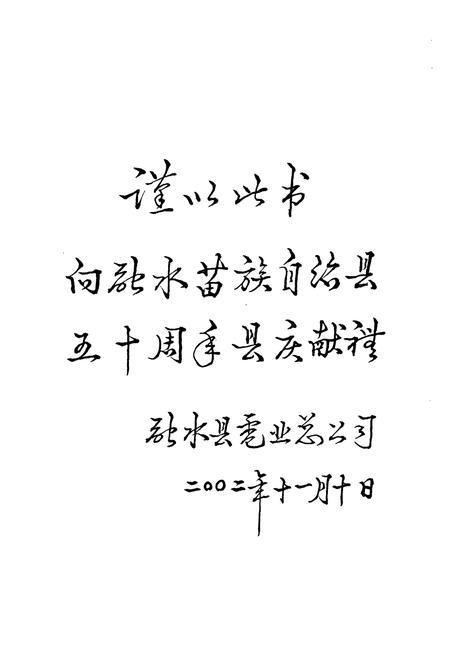 谨以此书
向融水苗族自治县
五十周年县庆献禮
融水县電业总公司
二〇〇二年十一月十日